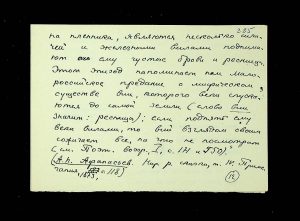 235
на пленника, являются несколько силачей
и железными вилами поднимают
ему густые брови и ресницы.
Этот эпизод напоминает нам малороссийское
предание о мифическом
существе вии, которого веки спускаются
до самой земли (слово вии
значит: ресница); если поднять ему
веки вилами, то вий взглядом своим
сожигает все, на что не посмотрит
(см. Поэт. воззр., I, с. 171 и
(А.Н. Афанасьев. Нар. р. сказки, т. IV, Примечания,
1873, с. 118)